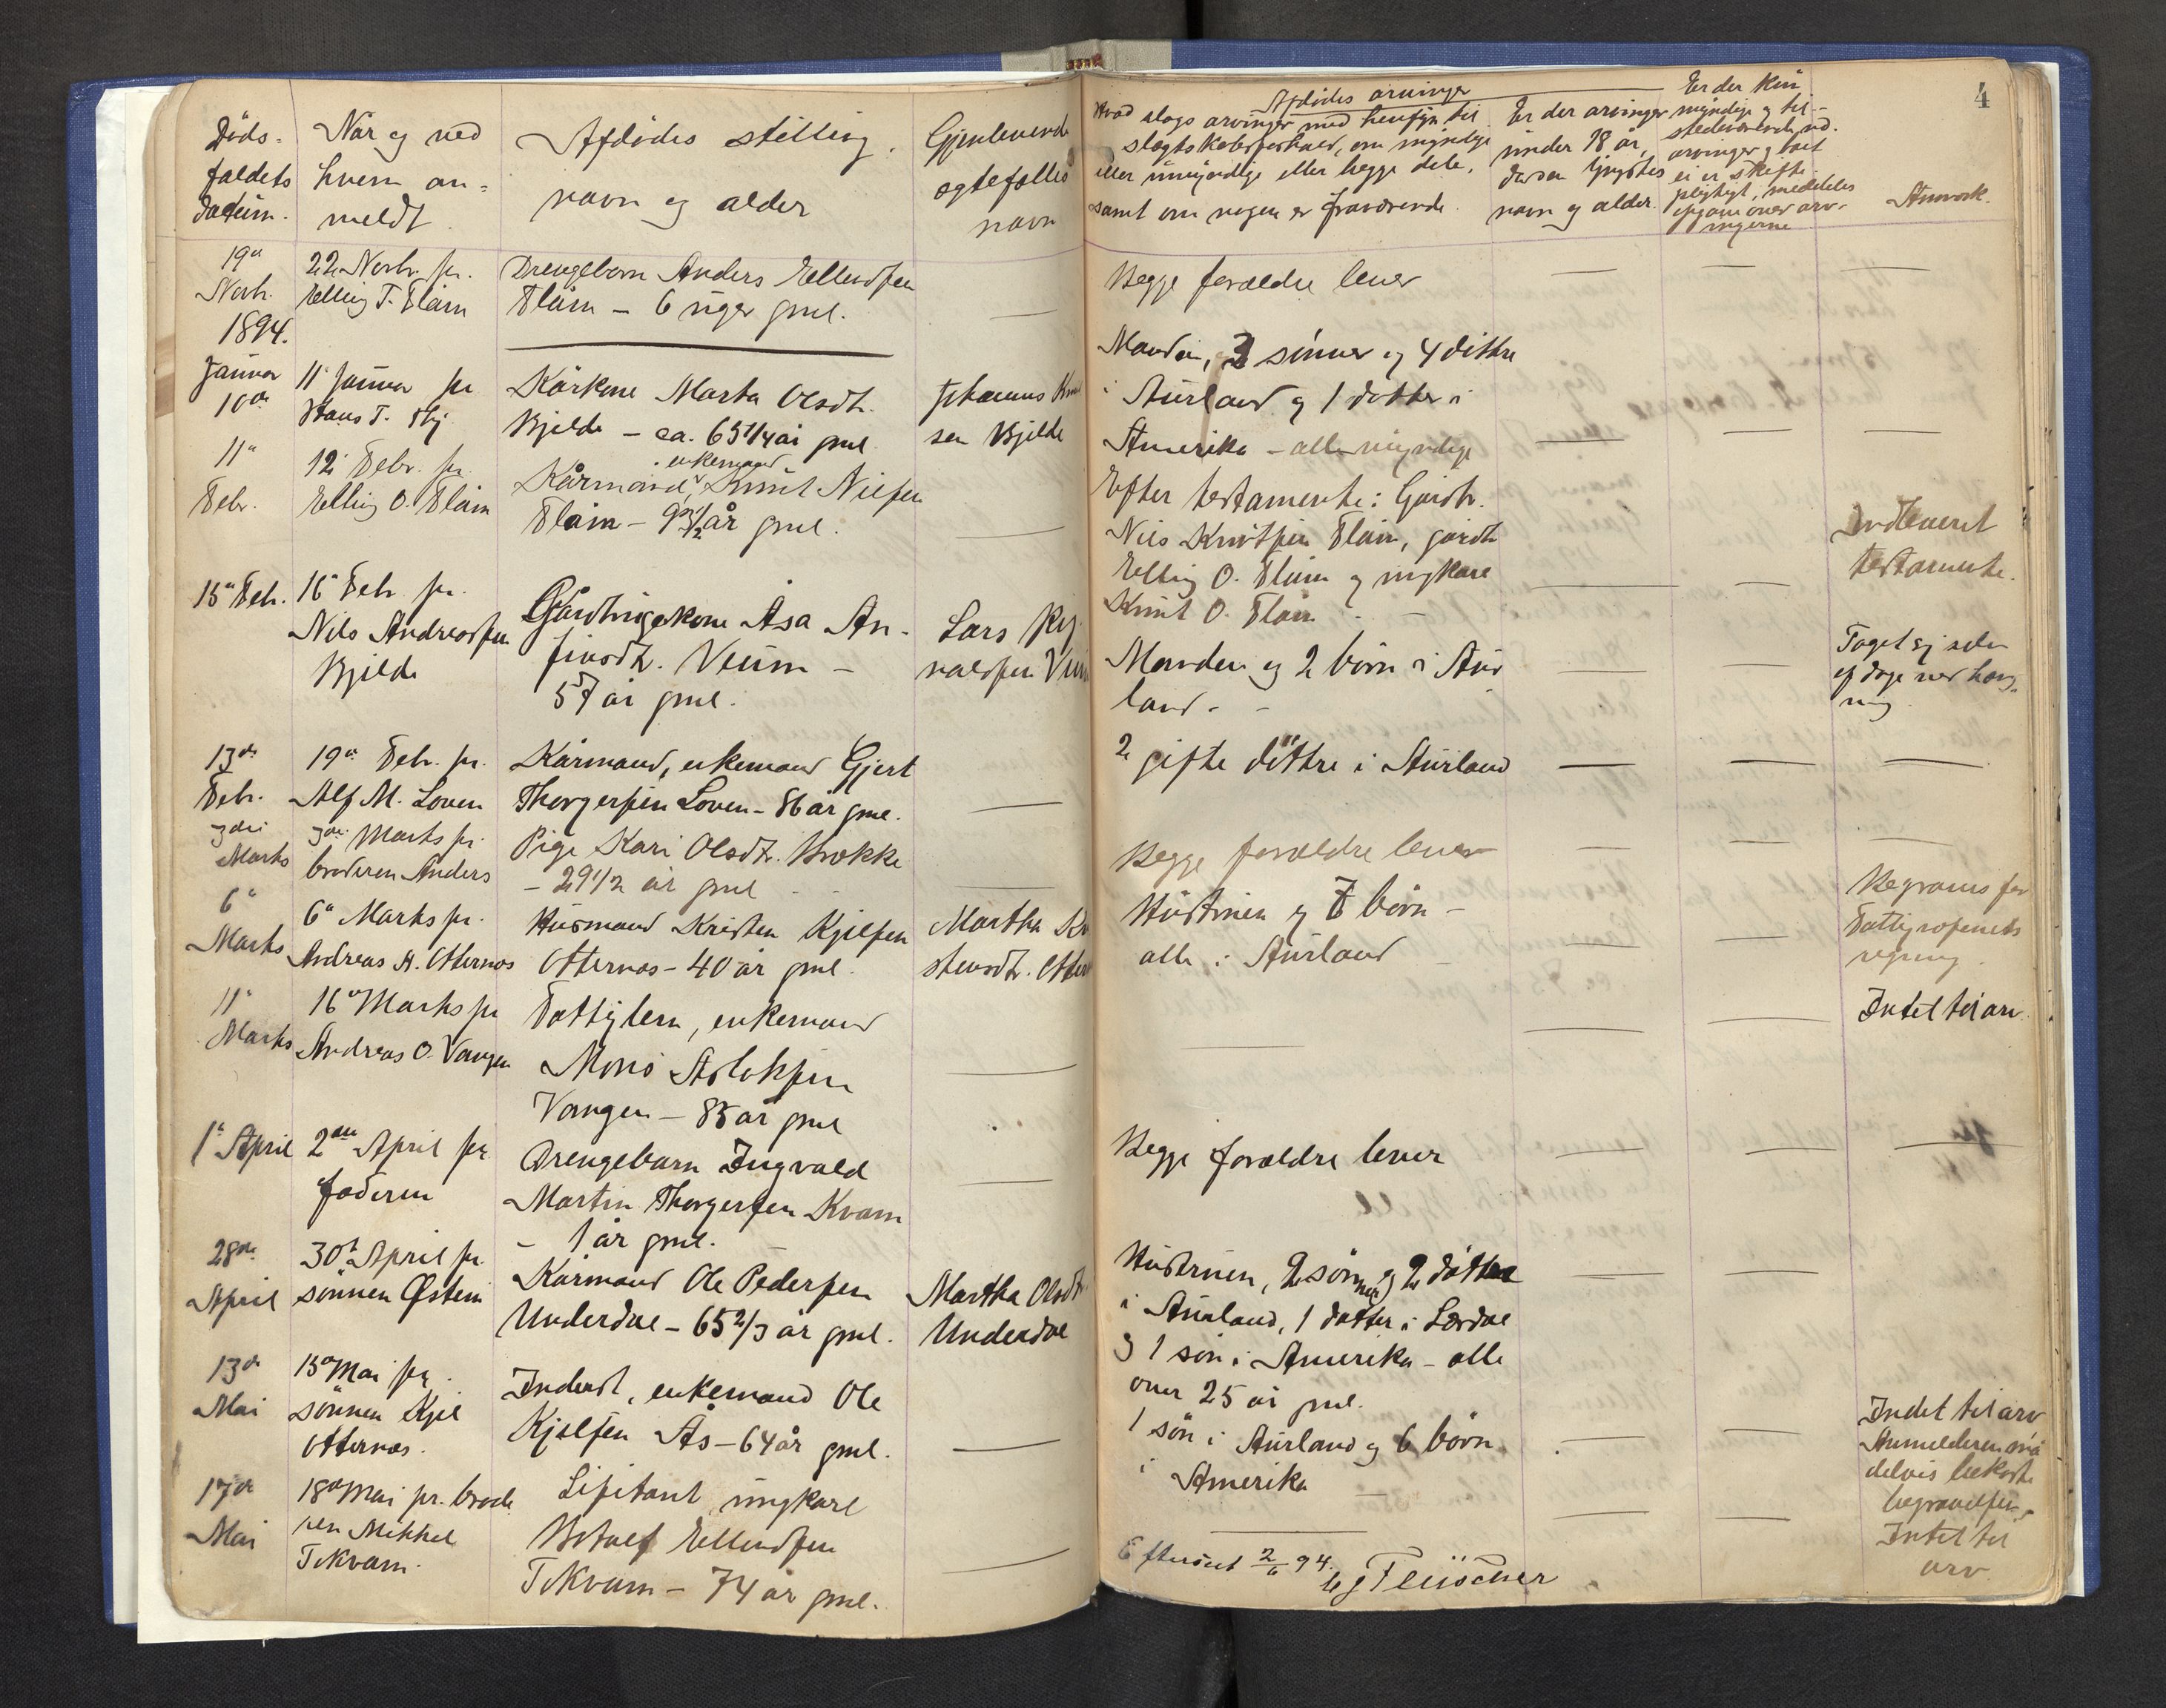 Døds-
faldets
datum.
Når og ved
hvem an-
meldt.
Afdødes stilling,
navn og alder
Gjenlevende
ægtefælles
navn
Afdødes arvinger
Hvad slags arvinger med hensyn til
slægtskabsforhold, om myndige
eller umyndige eller begge dele,
samt om nogen er fraværende.
Er der arvinger
under 18 år,
da den yngstes
navn og alder.
Er der kun
myndige og til-
stedeværende
arvinger og boet
ei er skifte-
pligtigt, meddeles
opgave over arv-
ingerne
Anmærk.
4
19de
Novbr.
22 Novbr. pr.
Elling T. Flåm
Drengebarn Anders Ellendsen
Flåm – 6 uger gml.
Begge forældre lever
1894.
Januar
10de
11te Januar pr
Hans T.
Kårkone Marta Olsdtr.
Bjelde – ca. 65 1/4 år gml.
Johannes Knud
sen Bjelde
Manden, 3 sønner og 4 døttre
i Aurland og 1 datter i
Amerika – alle myndige
11te
Febr.
12te Febr. pr.
Elling O. Flåm
enkemand
Kårmand, Knut Nilsen
Flåm – 93 1/2 år gml.
Efter testamente: Gårdbr.
Nils Knutsen Flåm, gårdbr
Elling O. Flåm og ungkare
Knut O. Flåm
Indleveret
testamente.
15de Feb.
16de Febr pr.
Nils Andreassen
Bjelde
Gårdbrugerkone Åsa An-
finsdtr. Veum –
57 år gml.
Lars
valdsen
Manden og 2 børn i Aur
land. –
Taget sig selv
af dage ved hæng-
ning
13de
Febr.
19de Febr. pr.
Alf M. Loven
Kårmand, enkemand Gjert
Thorgersen Loven – 86 år gml.
2 gifte døttre i Aurland
3die
Marts
3die Marts pr.
broderen Anders
Pige Kari Olsdtr. Brekke
– 29 1/2 år gml
Begge forældre lever
6te
Marts
6te Marts pr.
Andreas A. Otternes
Husmand Kristen Kjelsen
Otternes – 40 år gml.
Martha Kri
stensdtr. Otter
Hustruen og 7 børn –
alle i Aurland
Begraves for
Fattigvæsenets
regning.
11te
Marts
16de Marts pr
Andreas O. Vangen
Fattiglem, enkemand
Mons Aslaksen
Vangen – 85 år gml
Intet til arv
1ste April
2den April pr
faderen
Drengebarn Ingvald
Martin Thorgersen Kvam
– 1 år gml.
Begge forældre lever
28de
April
30te April pr.
sønnen Østein
Kårmand Ole Pedersen
Underdal – 65 2/3 år gml.
Martha Olsdtr
Underdal
Hustruen, 2 sønner og 2 døttre
i Aurland, 1 datter i Lærdal
og 1 søn i Amerika – alle
over 25 år gml.
13de
Mai
15de Mai pr.
sønnen Kjel
Otternes.
Inderst, enkemand Ole
Kjelsen Ås – 64 år gml.
1 søn i Aurland og 6 børn
i Amerika
Intet til arv
Anmelderen må
delvis bekoste
begravelsen.
17de
Mai
18de Mai pr. brode
ren Mikkel
Tokvam.
ungkarl
Botolf Ellendsen
Tokvam – 74 år gml.
Intet til
arv
Efterseet 2/6 94.
Fleischer